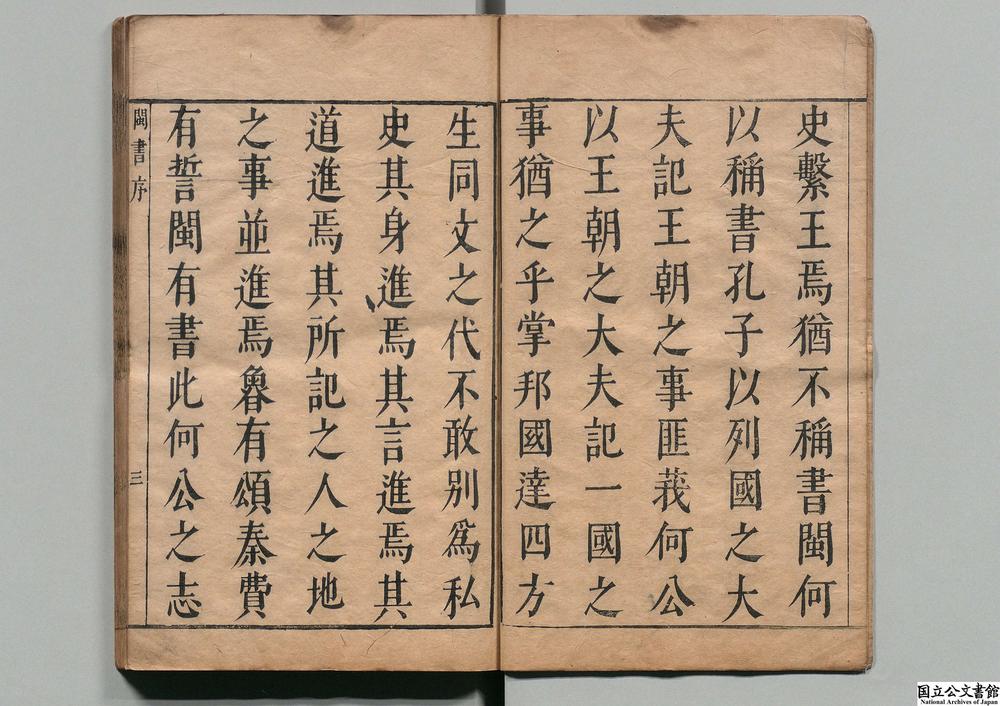 史繫王焉猶不稱書閩何
以稱書孔子以列國之大
夫記王朝之事匪莪何公
以王朝之大夫記一國之
事猶之乎掌邦國達四方
生同文之代不敢別爲私
史其身進焉其言進焉其
道進焉其所記之人之地
之事並進焉魯有頌秦費
有誓閩有書此何公之志
閩書序
三
国立公文書館
National Archives of Japan